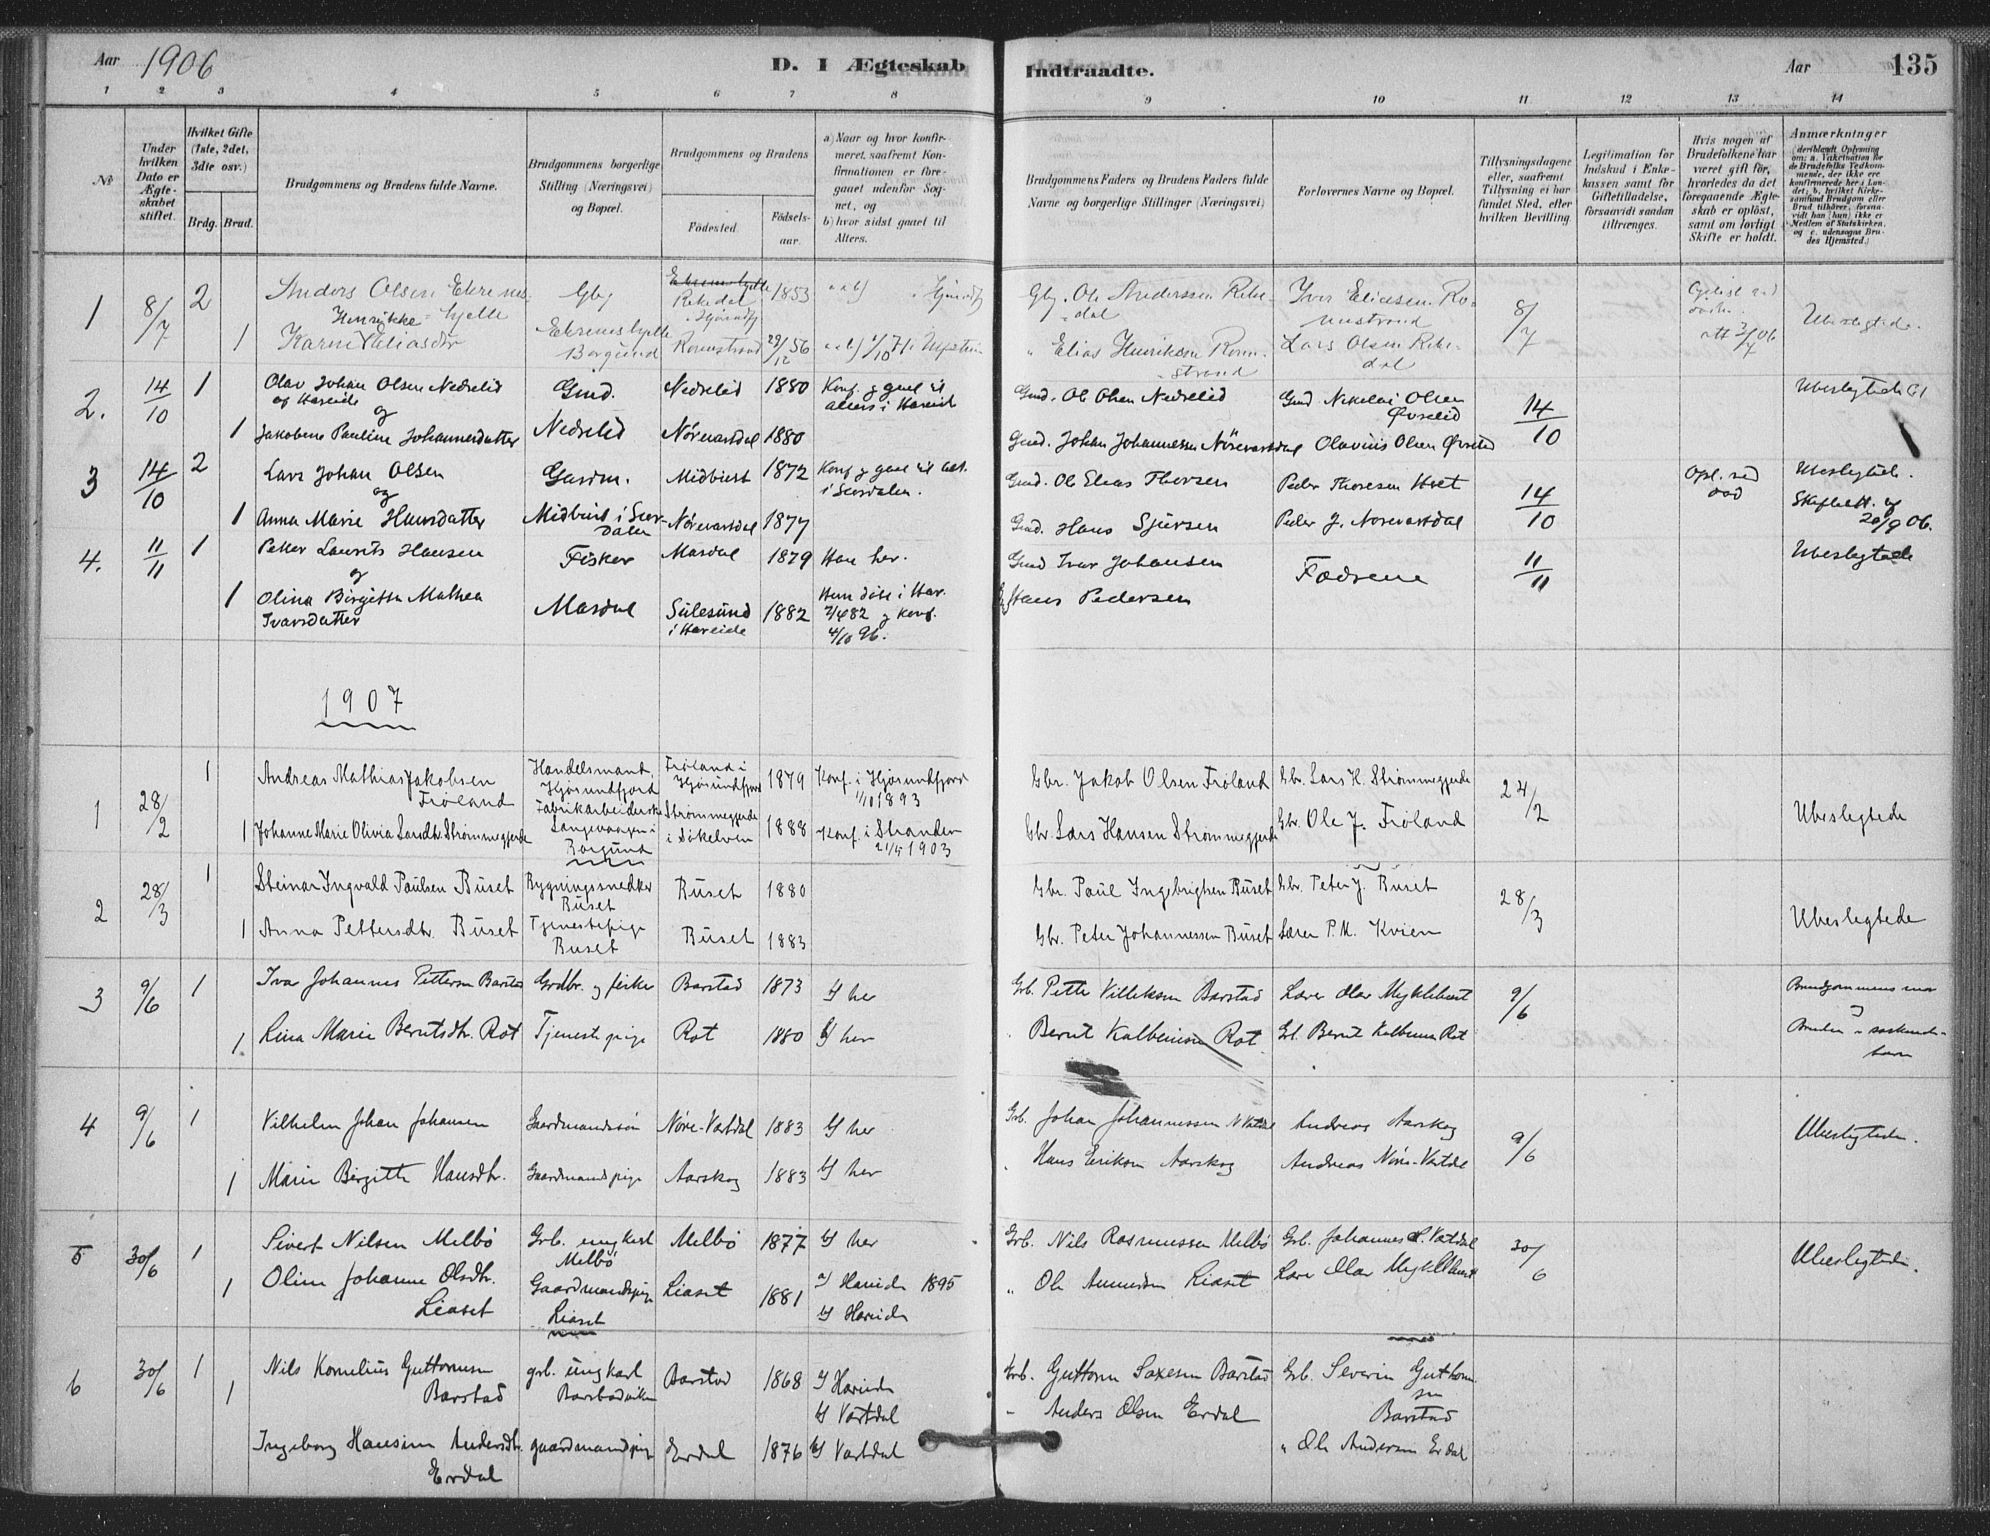 Aar 1906 D. I Ægteskab Indtraadte. Aar 135
1 2 3 4 5 6 7 8 9 10 11 12 13 14
№
Under hvilken Dato er Ægteskabet stiftet.
Hvilket Gifte (1ste, 2det, 3die osv.)
Brdg. Brud.
Brudgommens og Brudens fulde Navne.
Brudgommens borgerlige Stilling (Næringsvei) og Bopæl.
Brudgommens og Brudens
Fødested. Fødselsaar.
a) Naar og hvor konfirmeret, saafremt Konfirmationen er foregaaet udenfor Sognet, og
b) hvor sidst gaaet til Alters.
Brudgommens Faders og Brudens Faders fulde Navne og borgerlige Stillinger (Næringsvei)
Forlovernes Navne og Bopæl.
Tillysningsdagene eller, saafremt Tillysning ei har fundet Sted, efter hvilken Bevilling.
Legitimation for Indskud i Enkekassen samt for Giftetilladelse, forsaavidt saadan tiltrænges.
Hvis nogen af Brudefolkene har været gift før, hvorledes da det foregaaende Ægteskab er opløst, samt om lovligt Skifte er holdt.
Anmærkninger
1 8/7 2 Anders Olsen Ekrenes-hjelle Gbr. Rekedal 1853 Gbr. Ole Anderssen Rekedal Iver Eliesen Ro- 8/7
1 Karen Henrikke Eliasdtr Ekreneshjelle Borgund 29/12 56 Elias Henriksen Lars Olsen Rekedal Ubeslegtede.
2. 14/10 1 Olav Johan Olsen Nedrelid af Hareide Gmd. Nedrelid 1880 Konf. g gaaet til alters i Hareid Gmd. Ole Olsen Nedrelid Gmd Nikolai Olsen Øvrelid 14/10 Ubeslegtede
og
1 Jakobine Pauline Johannesdatter Nedrelid Nørevartdal 1880 Gmd. Johan Johannessen Nörevartdal Olavius Olsen Øvrelid
3 14/10 2 Lars Johan Olsen Gaardm. Midbust 1872 Konf g gaaet til alt. i Sævdalen. Gmd. Ole Elias Thorsen Peder Thoresen 14/10 Opl. ved død Ubeslegtede.
og
1 Anna Marie Hansdatter Midbust i Nørevartdal 1877 Gmd. Hans Sjursen Peder J. Norevartdal Skifteatt. af 20/9 06.
4. 11/11 1 Petter Laurits Hansen Fisker Masdal 1879 Han her. Gmd Ivar Johansen Fædrene 11/11 Ubeslegtede
og
1 Olina Birgitte Mathea Ivarsdatter Masdal Sulesund i Hareide 1882 Hun døbt i Har. 2/4 82 g konf. 4/10 96. Hans Pedersen
1907
1 28/2 1 Andreas Mathias Jakobsen Frøland Handelsmand, Hjørundfjord Frøland i Hjørundfjord 1879 Konf. i Hjørundfjord 1/10 1893 Gbr. Jakob Olsen Frøland Gbr. Lars H. Strømmegjerde 24/2
1 Johanne Marie Olivia Larsdtr. Strømmegjerde Fabrikarbeiderske Langevaagen i Borgund Strømmegjerde i Søkelven 1888 Konf. i Stranden 21/5 1903 Gbr. Lars Hansen Strømmegjerde Gbr. Ole J. Frøland Ubeslegtede
2 28/3 1 Steinar Ingvald Paulsen Buset Bygningssnedker Buset Buset 1880 Gbr. Paul Ingebrigtsen Buset Gbr. Peter J. Buset 28/3
1 Anna Pettersdtr. Buset Tjenestepige Buset Buset 1883 Gbr. Peter Johannessen Buset Lærer P. M. Kvien Ubeslegtede
3 9/6 1 Ivar Johannes Petterson Barstad Grdbr. og fisker Barstad 1873 b) her Grb. Petter Villiksen Barstad Lærer Olav Myklebust 9/6 Brudgommens mor og
1 Lina Marie Berntsdtr. Rot Tjenestepige Rot 1880 b) her Bernt Kolbeinsen Rot Grb. Bernt Kolbeinsen Rot Bruden søskendebarn
4 9/6 1 Vilhelm Johan Johansen Gaardmandssøn Nøre-Vartdal 1883 b) her Grb. Johan Johannessen N. Vatdal Andreas Aarskog 9/6 Ubeslegtede.
1 Marie Birgitte Hansdtr. Gaardmandspige Aarskog 1883 b) her Hans Eriksen Aarskog Andreas Nøre-Vartdal
5 30/6 1 Sivert Nilsen Melbø Grb. ungkarl Melbø Melbø 1877 b) her Grb. Nils Rasmussen Melbø Grb. Johannes Vatdal 30/6 Ubeslegtede.
1 Oline Johanne Olsdtr. Liaset Gaardmandspige Liaset Liaset 1881 a) Hareide 1895 b) Hareide " Ole Amundsen Liaset Lærer Olav Myklebust
6 30/6 1 Nils Kornelius Guttormsen Barstad grb. ungkarl Barstadviken Barstad 1868 a) Hareide b) Vartdal Grb. Guttorm Saxesen Barstad Grb. Severin Guttormsen Barstad
1 Ingeborg Hansine Andersdtr. Erdal gaardmandspige Erdal 1876 b) Vartdal Anders Olsen Erdal " Ole Andersen Erdal